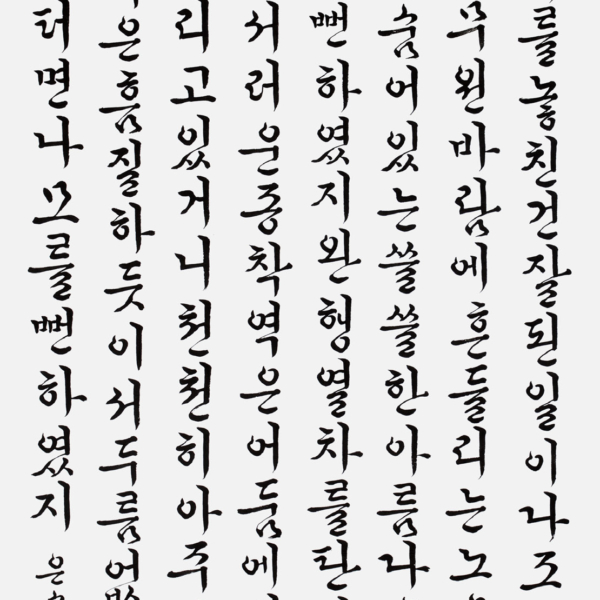 를놓친건잘된일이다조
무원바람에흔들리는노
숨어있는쓸쓸한아름다
뻔하였지완행열차를탄
서러운종착역은어둠에
리고있거니천천히아주
은홈질하듯이서두름없
터면나모를뻔하였지 은